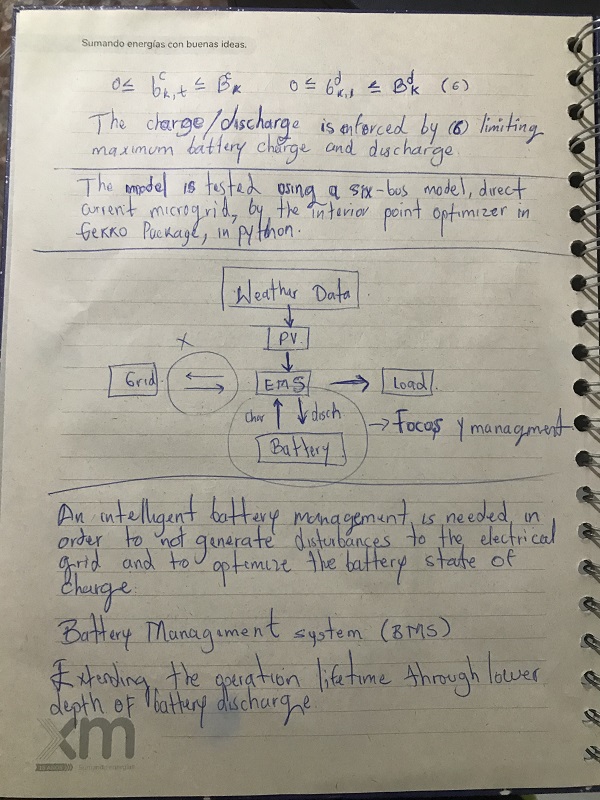 Sumando energías con buenas ideas.
0 ≤ b^c_{k,t} ≤ B^c_k 0 ≤ b^d_{k,t} ≤ B^d_k (6)
The charge/discharge is enforced by (6) limiting
maximum battery charge and discharge.
The model is tested using a six-bus model, direct
current microgrid, by the interior point optimizer in
GEKKO Package, in python.
Weather Data
PV
X
Grid EMS Load
char disch
Battery → Focos y managment
An intelligent battery management is needed in
order to not generate disturbances to the electrical
grid and to optimize the battery state of
charge.
Battery Management system (BMS)
Extending the operation lifetime through lower
depth of battery discharge
xm